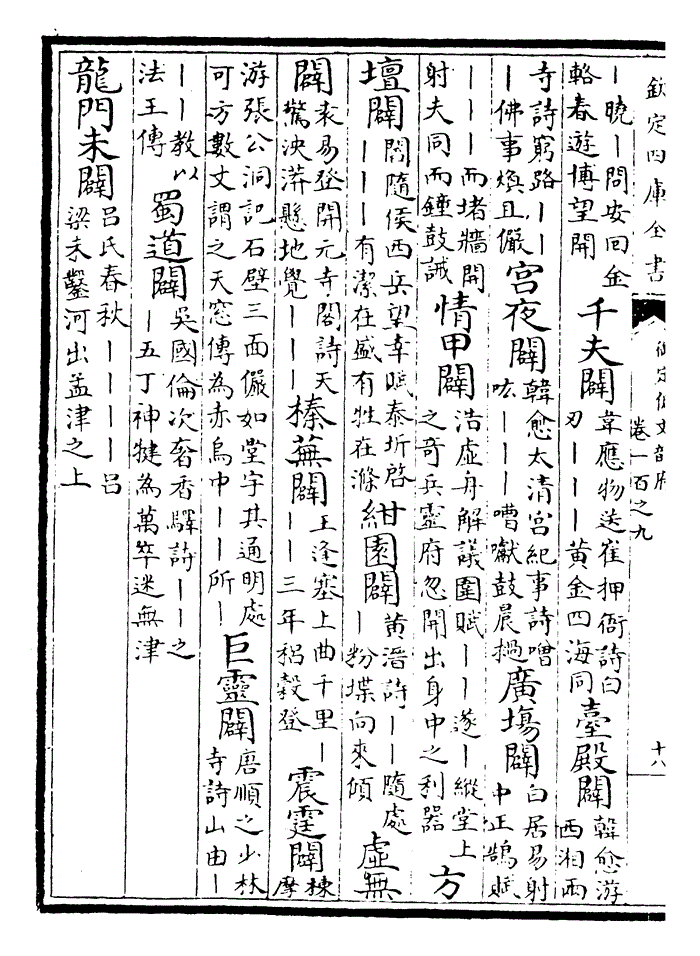 欽定四庫全書
御定佩文韻府
卷一百之九
十八
丨曉丨問安回金
輅春遊博望開
千夫闢
韋應物送崔押衙詩白
刃丨丨丨黃金四海同
臺殿闢
韓愈游
西湘西
寺詩窮路丨丨
丨佛事煥且儼
宮夜闢
韓愈太清宮紀事詩噌
吰丨丨丨嘈囐鼓晨撾
廣塲闢
白居易射
中正鵠賦
丨丨丨而堵牆開
射夫同而鍾鼓誡
情甲闢
浩虛舟解議圍賦丨丨遂丨縱堂上
之奇兵靈府忽開出身中之利器
方
壇闢
閻隨侯西岳望幸賦泰圻啓
丨丨丨有潔在盛有牲在滌
紺園闢
黄溍詩丨丨隨處
丨粉堞向來傾
虛無
闢
袁易登開元寺閣詩天
驚泱漭懸地覺丨丨丨
榛蕪闢
王逢塞上曲千里丨
丨丨三年稆穀登
震霆闢
楝
摩
游張公洞記石壁三面儼如堂宇其通明處
可方數丈謂之天窓傳為赤烏中丨丨所丨
巨靈闢
唐順之少林
寺詩山由丨
丨丨教以
法王傳
蜀道闢
吳國倫次奢香驛詩丨丨之
丨五丁神犍為萬卒迷無津
龍門未闢
呂氏春秋丨丨丨丨呂
梁未鑿河出孟津之上